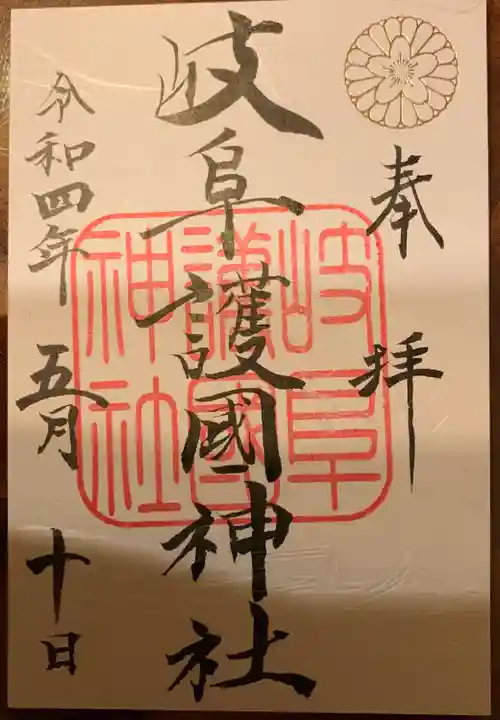 奉拝
岐阜護國神社
岐阜
護國
神社
令和四年五月十日